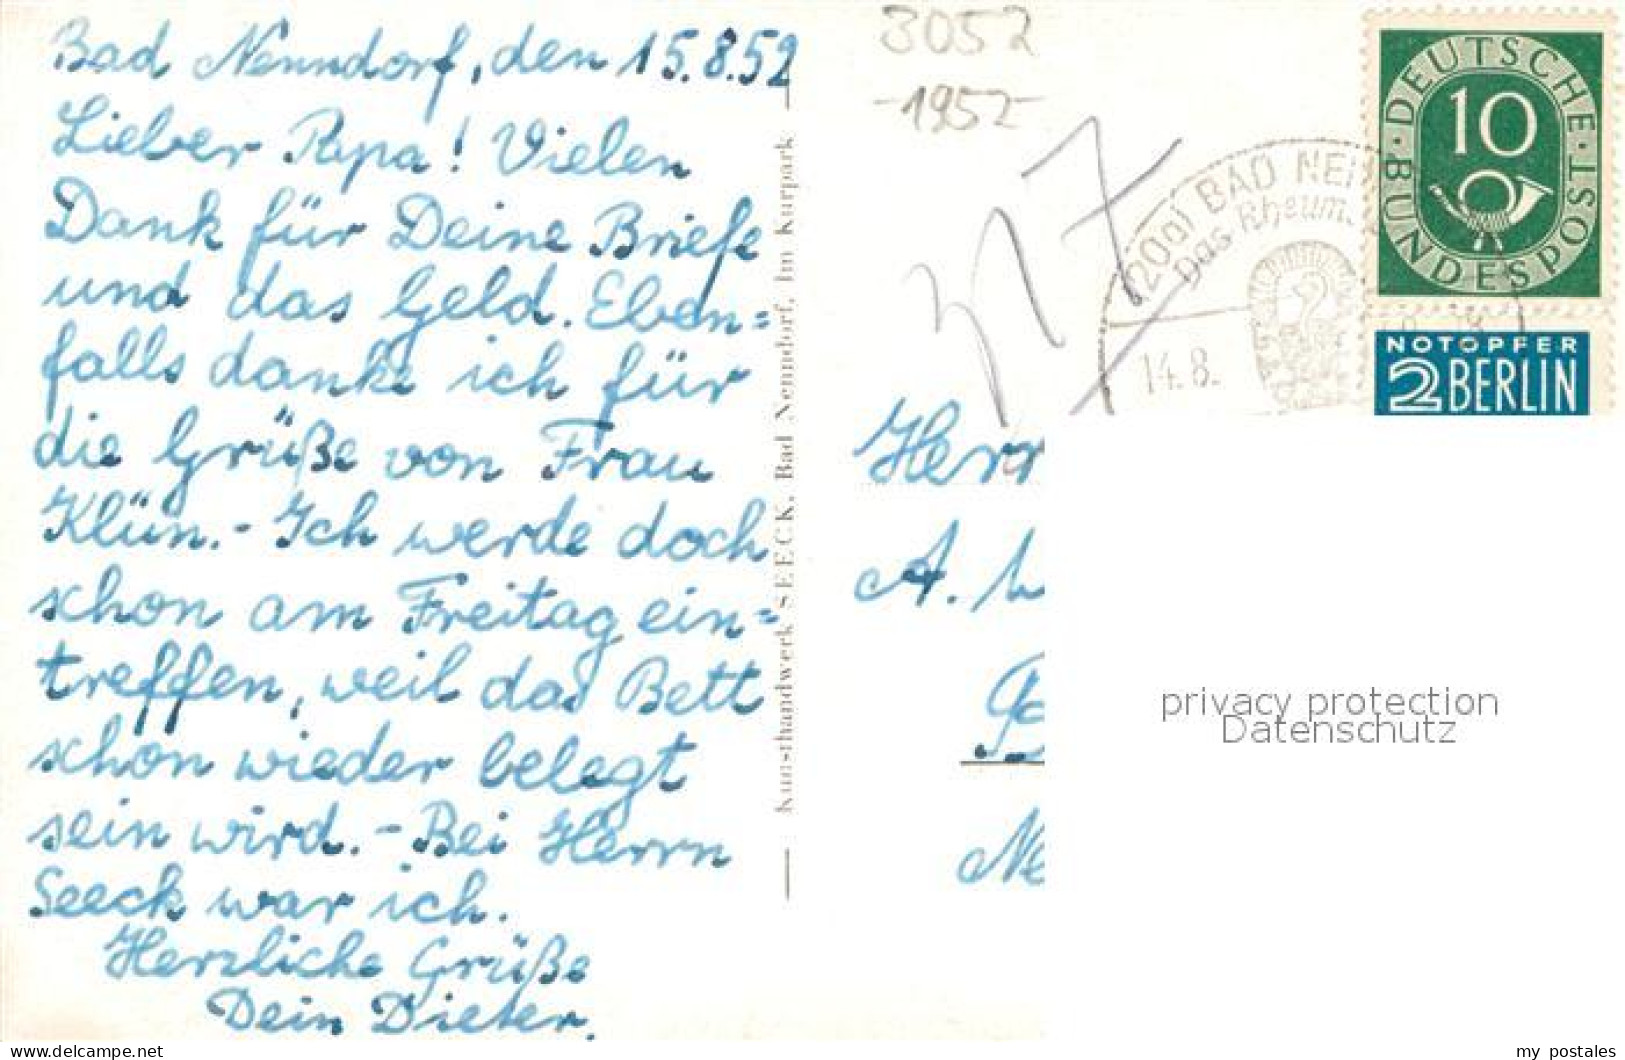 Bad Nenndorf, den 15.8.52
Lieber Papa! Vielen
Dank für Deine Briefe
und das Geld. Eben=
falls danke ich für
die Grüße von Frau
Klün. - Ich werde doch
schon am Freitag ein=
treffen, weil das Bett
schon wieder belegt
sein wird. - Bei Herrn
Seeck war ich.
Herzliche Grüße
Dein Dieter.
Kunsthandwerk SEECK, Bad Nenndorf, Im Kurpark
3052
-1952-
(20a) BAD NEN
Das Rheum
14.8.
DEUTSCHE · BUNDESPOST ·
10
NOTOPFER
2 BERLIN
Herr
A.
Ne
privacy protection
Datenschutz
delcampe.net
my_postales